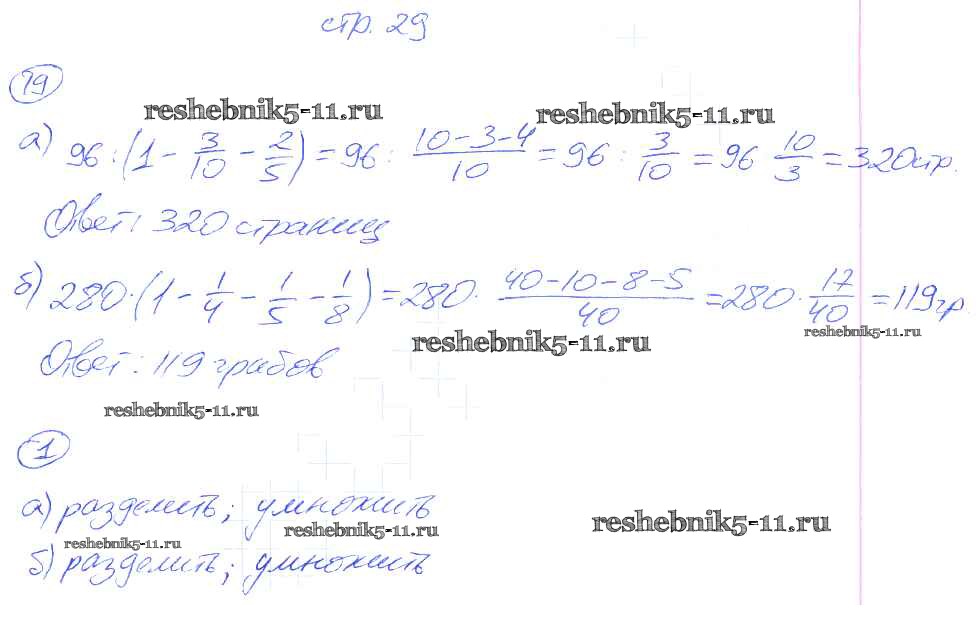 стр. 29
19
reshebnik5-11.ru reshebnik5-11.ru
а) 96 : (1 - 3/10 - 2/5) = 96 : (10-3-4)/10 = 96 : 3/10 = 96 10/3 = 320 стр.
Ответ: 320 страниц
б) 280 · (1 - 1/4 - 1/5 - 1/8) = 280 · (40-10-8-5)/40 = 280 · 17/40 = 119 гр.
reshebnik5-11.ru reshebnik5-11.ru
Ответ: 119 грибов
reshebnik5-11.ru
1
а) разделить; умножить
reshebnik5-11.ru reshebnik5-11.ru reshebnik5-11.ru
б) разделить; умножить